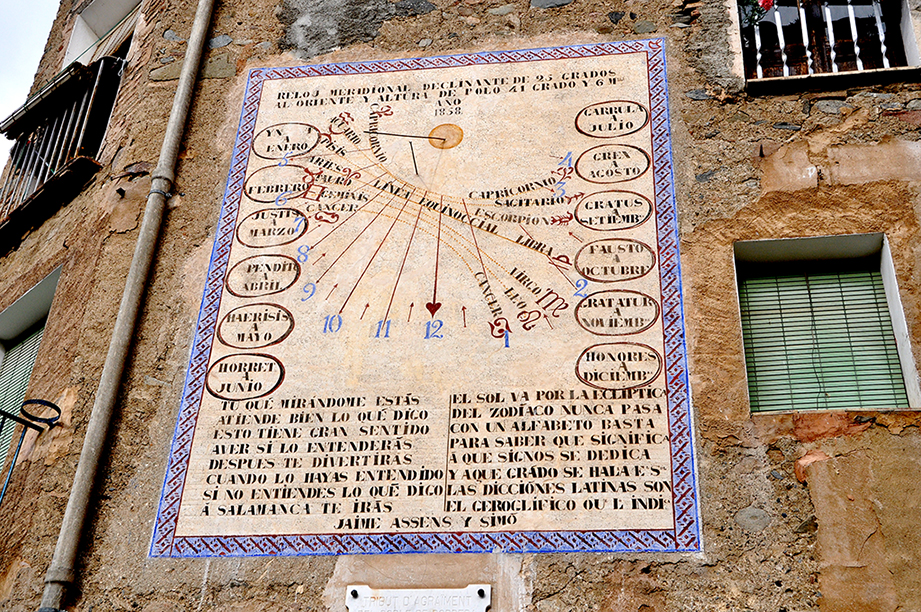 RELOJ MERIDIONAL DECLINANTE DE 25 GRADOS
AL ORIENTE Y ALTURA DE POLO 41 GRADO Y 6 Mˢ
AÑO
1858.
YV. A
ENERO
FEBRERO
JUSTIS
A
MARZO
PENDIT
A
ABRIL
HAERISIS
A
MAYO
HORRET
A
JUNIO
GARRULA
A
JULIO
GREX
A
AGOSTO
GRATUS
A
SETIEMBᵉ
FAUSTO
A
OCTUBRE
GRATATUR
A
NOVIEMBᵉ
HONORES
A
DICIEMBᵉ
ACUARIO
PISIS
ARIES
TAURO
CANCER
CAPRICORNIO
CAPRICORNIO
SAGITARIO
ESCORPION
LINEA EQUINOCCIAL LIBRA
VIRGO
LEO
CANCER
5
6
7
8
9
10
11
12
1
2
3
4
TU QUE MIRÁNDOME ESTÁS
ATIENDE BIEN LO QUÉ DIGO
ESTO TIENE GRAN SENTIDO
AVER SÍ LO ENTENDERÁS
DESPUES TE DIVERTIRÁS
CUANDO LO HAYAS ENTENDIDO
SÍ NO ENTIENDES LO QUÉ DIGO
Á SALAMANCA TE IRÁS
EL SOL VA POR LA ECLIPTICA
DEL ZODÍACO NUNCA PASA
CON UN ALFABETO BASTA
PARA SABER QUE SIGNIFICA
A QUE SIGNOS SE DEDICA
Y AQUE GRADO SE HALA E'Sᵀᴱ
LAS DICCIONES LATINAS SON
EL GEROGLIFICO QU L INDIᶜᴬ
JAIME ASSENS Y SIMÓ
TRIBUT D'AGRAIMENT